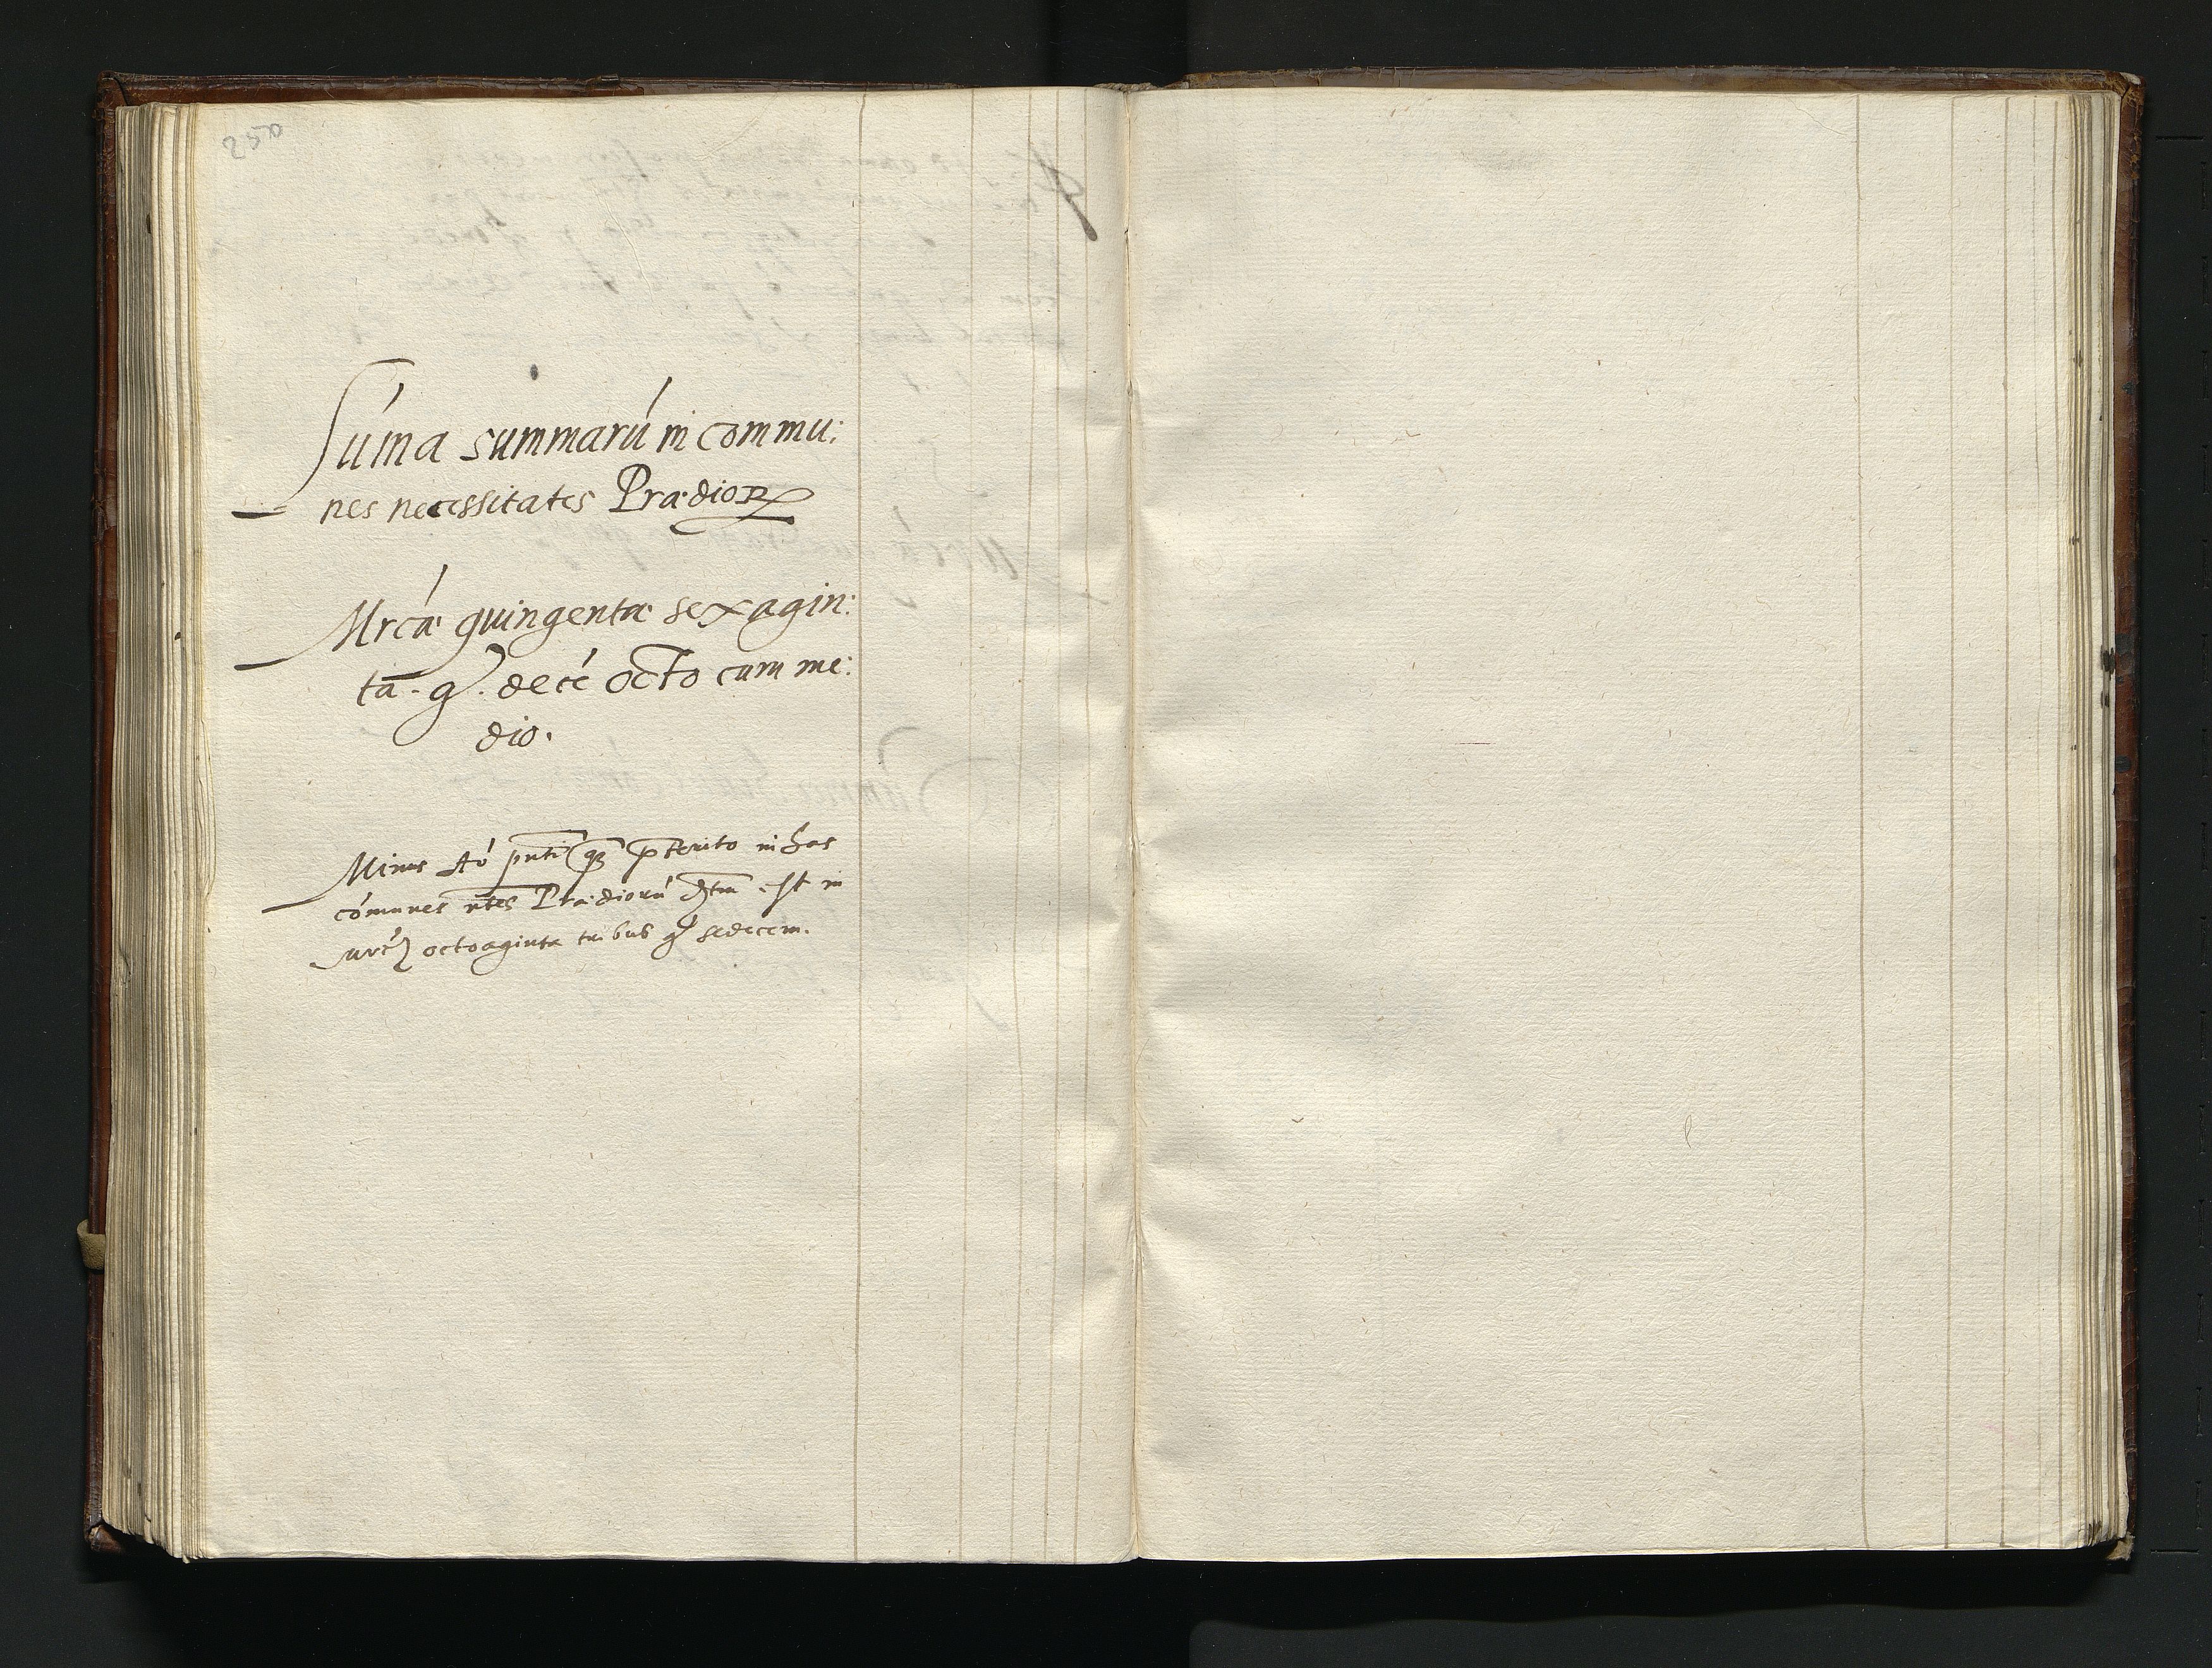 250
Súma summarú in commu:
nes necessitates Prædioꝝ
Mrcæ quingentæ sexagin:
ta. g. decé octo cum me:
dio.
Minus Aó pnti qȝ pterito in has
cómunes ntes Prædiorú est in
mrcꝭ octoaginta tribus g sedecem.